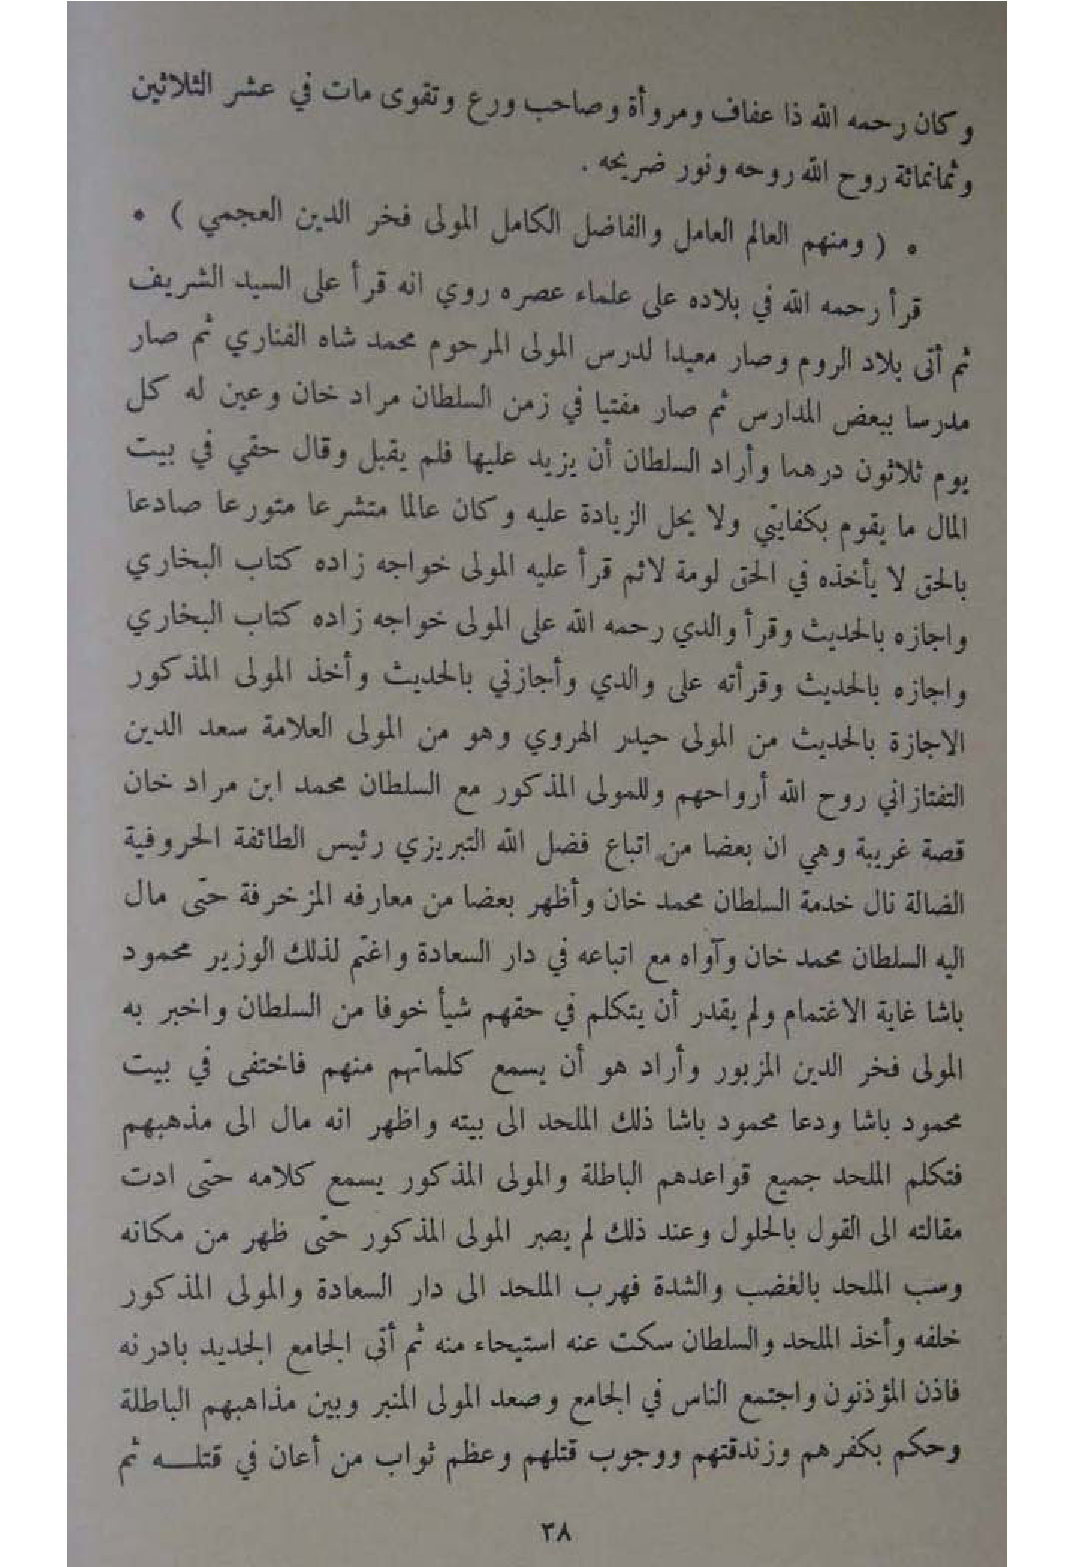 وكان رحمه الله ذا عفاف ومروأة وصاحب ورع وتقوى مات في عشر الثلاثين
وثمانمائة روح الله روحه ونور ضريحه .
* ( ومنهم العالم العامل والفاضل الكامل المولى فخر الدين العجمي ) *
قرأ رحمه الله في بلاده على علماء عصره روي انه قرأ على السيد الشريف
ثم أتى بلاد الروم وصار معيدا لدرس المولى المرحوم محمد شاه الفناري ثم صار
مدرسا ببعض المدارس ثم صار مفتيا في زمن السلطان مراد خان وعين له كل
يوم ثلاثون درهما وأراد السلطان أن يزيد عليها فلم يقبل وقال حقي في بيت
المال ما يقوم بكفايتي ولا يحل الزيادة عليه وكان عالما متشرعا متورعا صادعا
بالحق لا يأخذه في الحق لومة لائم قرأ عليه المولى خواجه زاده كتاب البخاري
واجازه بالحديث وقرأ والدي رحمه الله على المولى خواجه زاده كتاب البخاري
واجازه بالحديث وقرأته على والدي وأجازني بالحديث وأخذ المولى المذكور
الاجازة بالحديث من المولى حيدر الهروي وهو من المولى العلامة سعد الدين
التفتازاني روح الله أرواحهم وللمولى المذكور مع السلطان محمد ابن مراد خان
قصة غريبة وهي ان بعضا من اتباع فضل الله التبريزي رئيس الطائفة الحروفية
الضالة نال خدمة السلطان محمد خان وأظهر بعضا من معارفه المزخرفة حتى مال
اليه السلطان محمد خان وآواه مع اتباعه في دار السعادة واغتم لذلك الوزير محمود
باشا غاية الاغتمام ولم يقدر أن يتكلم في حقهم شيأ خوفا من السلطان واخبر به
المولى فخر الدين المزبور وأراد هو أن يسمع كلماتهم منهم فاختفى في بيت
محمود باشا ودعا محمود باشا ذلك الملحد الى بيته واظهر انه مال الى مذهبهم
فتكلم الملحد جميع قواعدهم الباطلة والمولى المذكور يسمع كلامه حتى ادت
مقالته الى القول بالحلول وعند ذلك لم يصبر المولى المذكور حتى ظهر من مكانه
وسب الملحد بالغضب والشدة فهرب الملحد الى دار السعادة والمولى المذكور
خلفه وأخذ الملحد والسلطان سكت عنه استيحاء منه ثم أتى الجامع الجديد بادرنه
فاذن المؤذنون واجتمع الناس في الجامع وصعد المولى المنبر وبين مذاهبهم الباطلة
وحكم بكفرهم وزندقتهم ووجوب قتلهم وعظم ثواب من أعان في قتلـــه ثم
٣٨